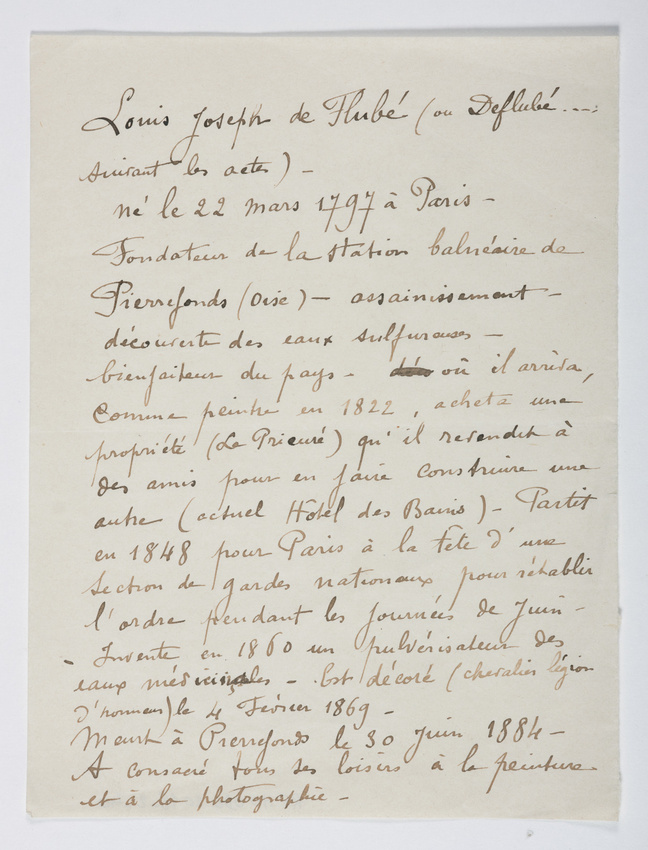 Louis Joseph de Flubé (ou Deflubé ...
suivant les actes) -
né le 22 mars 1797 à Paris -
Fondateur de la station balnéaire de
Pierrefonds (Oise) - assainissement -
découverte des eaux sulfureuses -
bienfaiteur du pays - où il arriva,
comme peintre en 1822, acheta une
propriété (Le Prieuré) qu'il revendit à
des amis pour en faire construire une
autre (actuel Hôtel des Bains) - Partit
en 1848 pour Paris à la tête d'une
section de gardes nationaux pour rétablir
l'ordre pendant les journées de Juin -
Invente en 1860 un pulvérisateur des
eaux médicinales - Est décoré (chevalier légion
d'honneur) le 4 Février 1869 -
Meurt à Pierrefonds le 30 Juin 1884 -
A consacré tous ses loisirs à la peinture
et à la photographie -